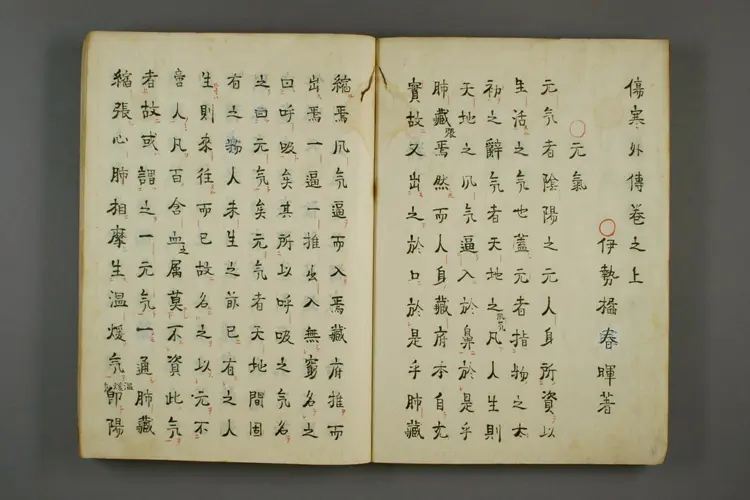 傷寒外傳卷之上
伊勢橘春暉著
○元氣
元気者陰陽之元人身所資以
生活之気也蓋元者指物之太
初之辭気者天地之風気凡人生則
天地之風気逼入於鼻於是乎
肺藏張焉然而人身藏府本自充
實故又出之於口於是乎肺藏
縮焉風気逼而入焉藏府推而
出焉一逼一推出入無窮名之
曰呼吸矣其所以呼吸之気名
之曰元気矣元気者天地間固
有之物人未生之前已有之人
生則來往而已故名之以元不
啻人凡百含血之属莫不資此気
者故或謂之一元気一通肺藏
縮張心肺相摩生温煖気温煖即陽